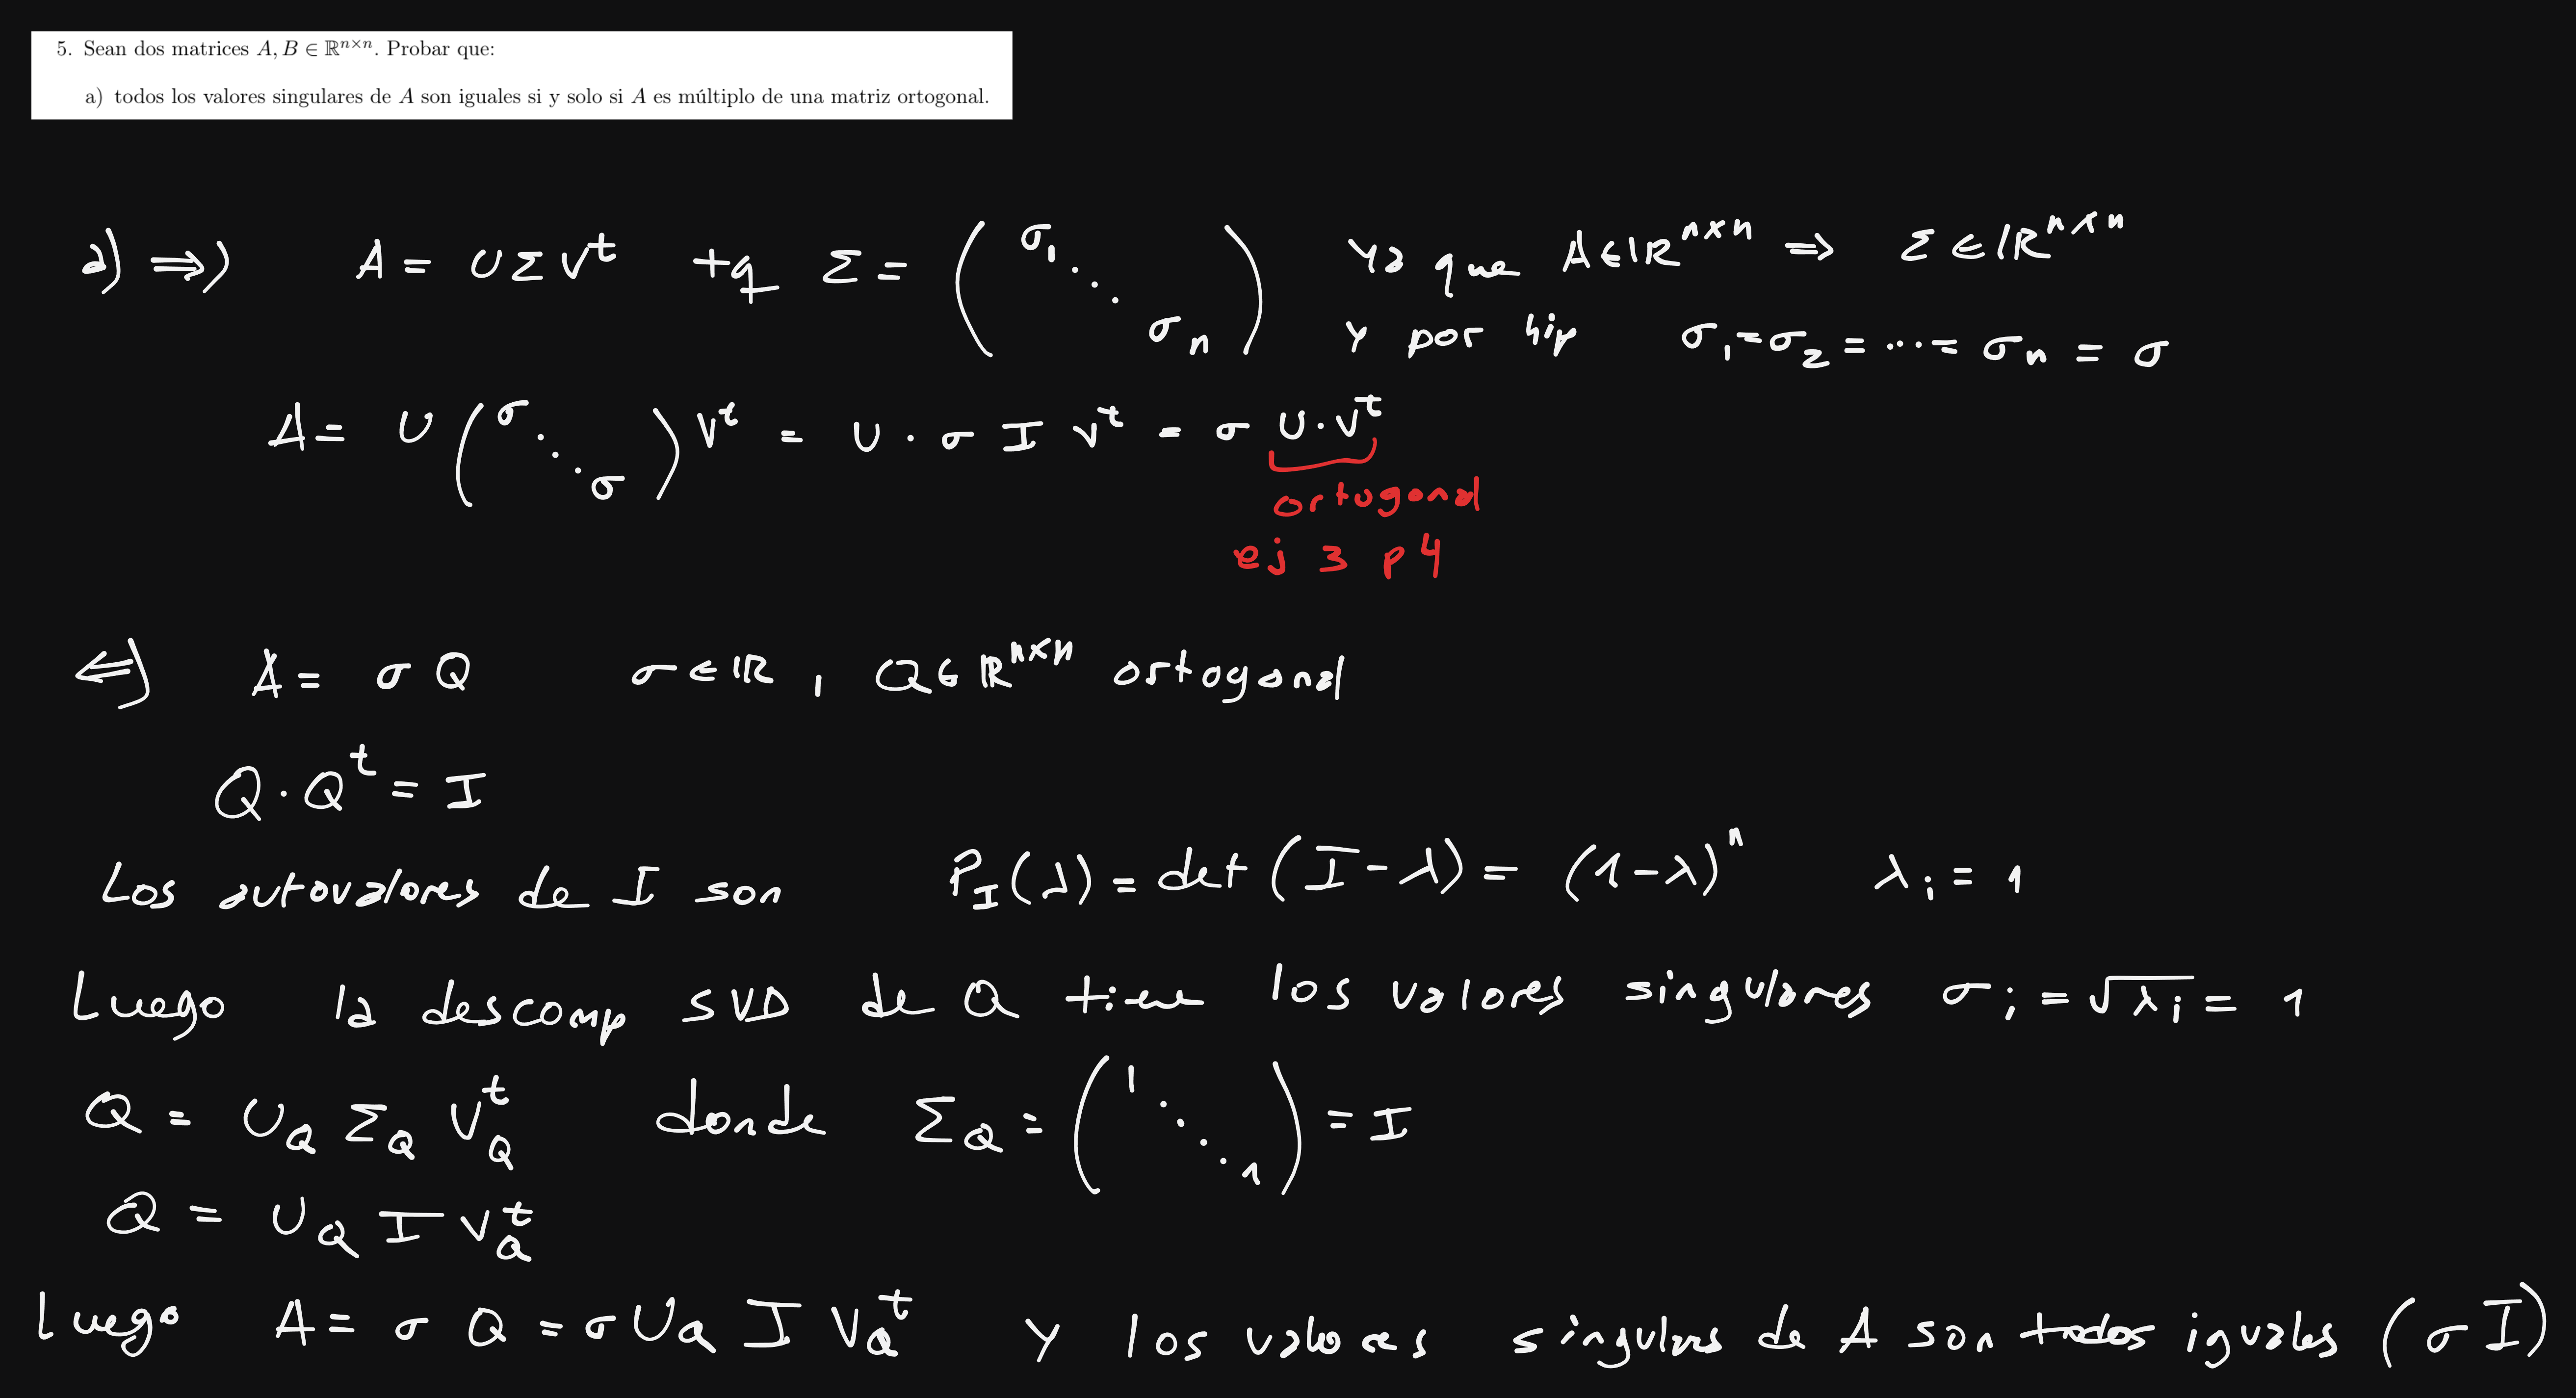 5. Sean dos matrices A, B ∈ ℝⁿˣⁿ. Probar que:
a) todos los valores singulares de A son iguales si y solo si A es múltiplo de una matriz ortogonal.
a) ⇒) A = U Σ Vᵗ tq Σ = (σ₁ ⋱ σₙ) Ya que A ∈ ℝⁿˣⁿ ⇒ Σ ∈ ℝⁿˣⁿ
Y por hip σ₁ = σ₂ = ... = σₙ = σ
A = U (σ ⋱ σ) Vᵗ = U · σ I Vᵗ = σ U · Vᵗ
ortogonal
ej 3 p 4
⇐) A = σ Q σ ∈ ℝ , Q ∈ ℝⁿˣⁿ ortogonal
Q · Qᵗ = I
Los autovalores de I son P_I(λ) = det (I - λ) = (1 - λ)ⁿ λᵢ = 1
Luego la descomp SVD de Q tiene los valores singulares σᵢ = √λᵢ = 1
Q = U_Q Σ_Q V_Qᵗ donde Σ_Q = (1 ⋱ 1) = I
Q = U_Q I V_Qᵗ
Luego A = σ Q = σ U_Q I V_Qᵗ Y los valores singulares de A son todos iguales (σ I)